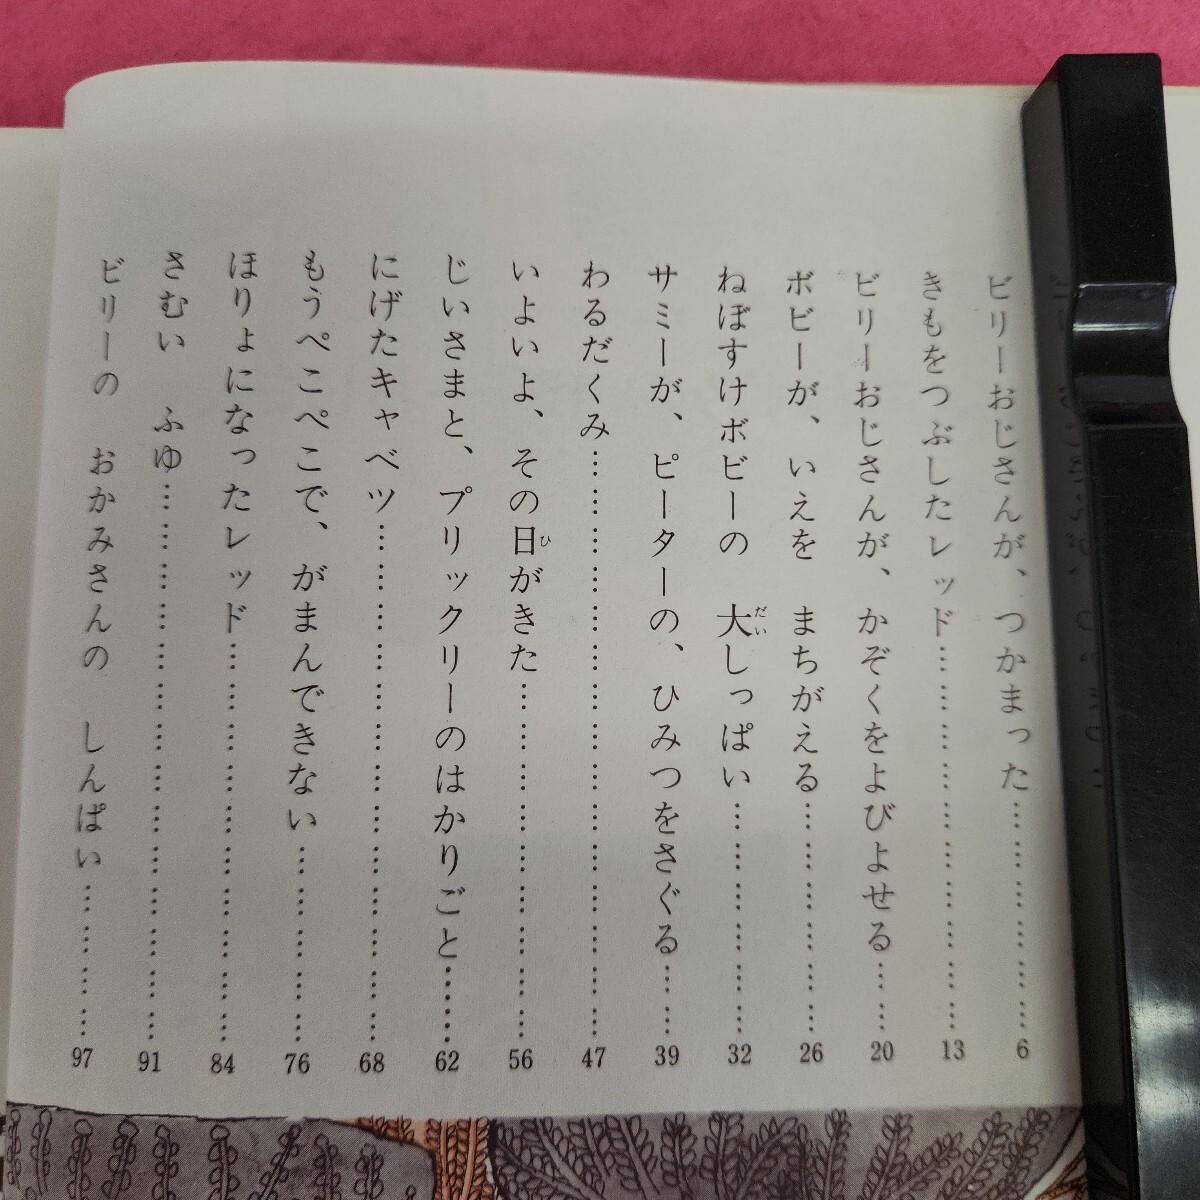 ビリーおじさんが、つかまった…………………6
きもをつぶしたレッド……………………………13
ビリーおじさんが、かぞくをよびよせる………20
ボビーが、いえを　まちがえる…………………26
ねぼすけボビーの　大しっぱい…………………32
だい
サミーが、ピーターの、ひみつをさぐる………39
わるだくみ…………………………………………47
いよいよ、その日がきた…………………………56
ひ
じいさまと、プリックリーのはかりごと………62
にげたキャベツ……………………………………68
もうぺこぺこで、がまんできない………………76
ほりょになったレッド……………………………84
さむい　ふゆ………………………………………91
ビリーの　おかみさんの　しんぱい……………97